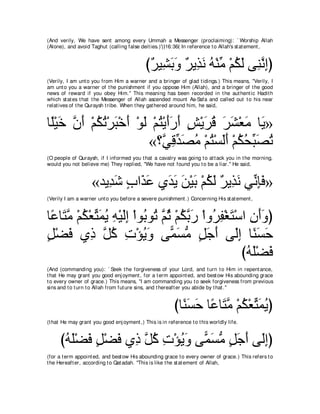 (And verily, We have sent among every Ummah a Messenger (proclaiming): `Worship Allah
(Alone), and avoid Taghut (calling false deities.)')(16:36) In reference to Allah's statement,
(إِنَّنِى لَكُمْ مِّنْهُ نَذِيرٌ وَبَشِيرٌ)
(Verily, I am to you from Him a warner and a bringer of glad tidings.) This means, "Verily, I
am unto you a warner of the punishment if you oppose Him (Allah), and a bringer of the good
news of reward if you obey Him." This meaning has been recorded in the authentic Hadith
which states that the Messenger of Allah ascended mount As-Safa and called out to his near
relatives of the Quraysh tribe. When they gathered around him, he said,
«يَا مَعْشَرَ قُرَيْشٍ أَرَأَيْتُمْ لَوْ أَخْبَرْتُكُمْ أَنَّ خَيْلًا
تُصَبِّحُكُمْ أَلَسْتُمْ مُصَدِّقِيَّ؟»
(O people of Quraysh, if I informed you that a cavalry was going to attack you in the morning,
would you not believe me) They replied, "We have not found you to be a liar." He said,
«فَإِنِّي نَذِيرٌ لَكُمْ بَيْنَ يَدَيْ عَذَابٍ شَدِيد»
(Verily I am a warner unto you before a severe punishment.) Concerning His statement,
(وَأَنِ اسْتَغْفِرُواْ رَبَّكُمْ ثُمَّ تُوبُواْ إِلَيْهِ يُمَتِّعْكُمْ مَّتَاعًا
حَسَنًا إِلَى أَجَلٍ مُّسَمًّى وَيُؤْتِ كُلَّ ذِي فَضْلٍ
فَضْلَهُ)
(And (commanding you): `Seek the forgiveness of your Lord, and turn to Him in repentance,
that He may grant you good enjoyment, for a term appointed, and bestow His abounding grace
to every owner of grace.) This means, "I am commanding you to seek forgiveness from previous
sins and to turn to Allah from future sins, and thereafter you abide by that."
(يُمَتِّعْكُمْ مَّتَاعًا حَسَنًا)
(that He may grant you good enjoyment,) This is in reference to this worldly life.
(إِلَى أَجَلٍ مُّسَمًّى وَيُؤْتِ كُلَّ ذِي فَضْلٍ فَضْلَهُ)
(for a term appointed, and bestow His abounding grace to every owner of grace.) This refers to
the Hereafter, according to Qatadah. "This is like the statement of Allah,